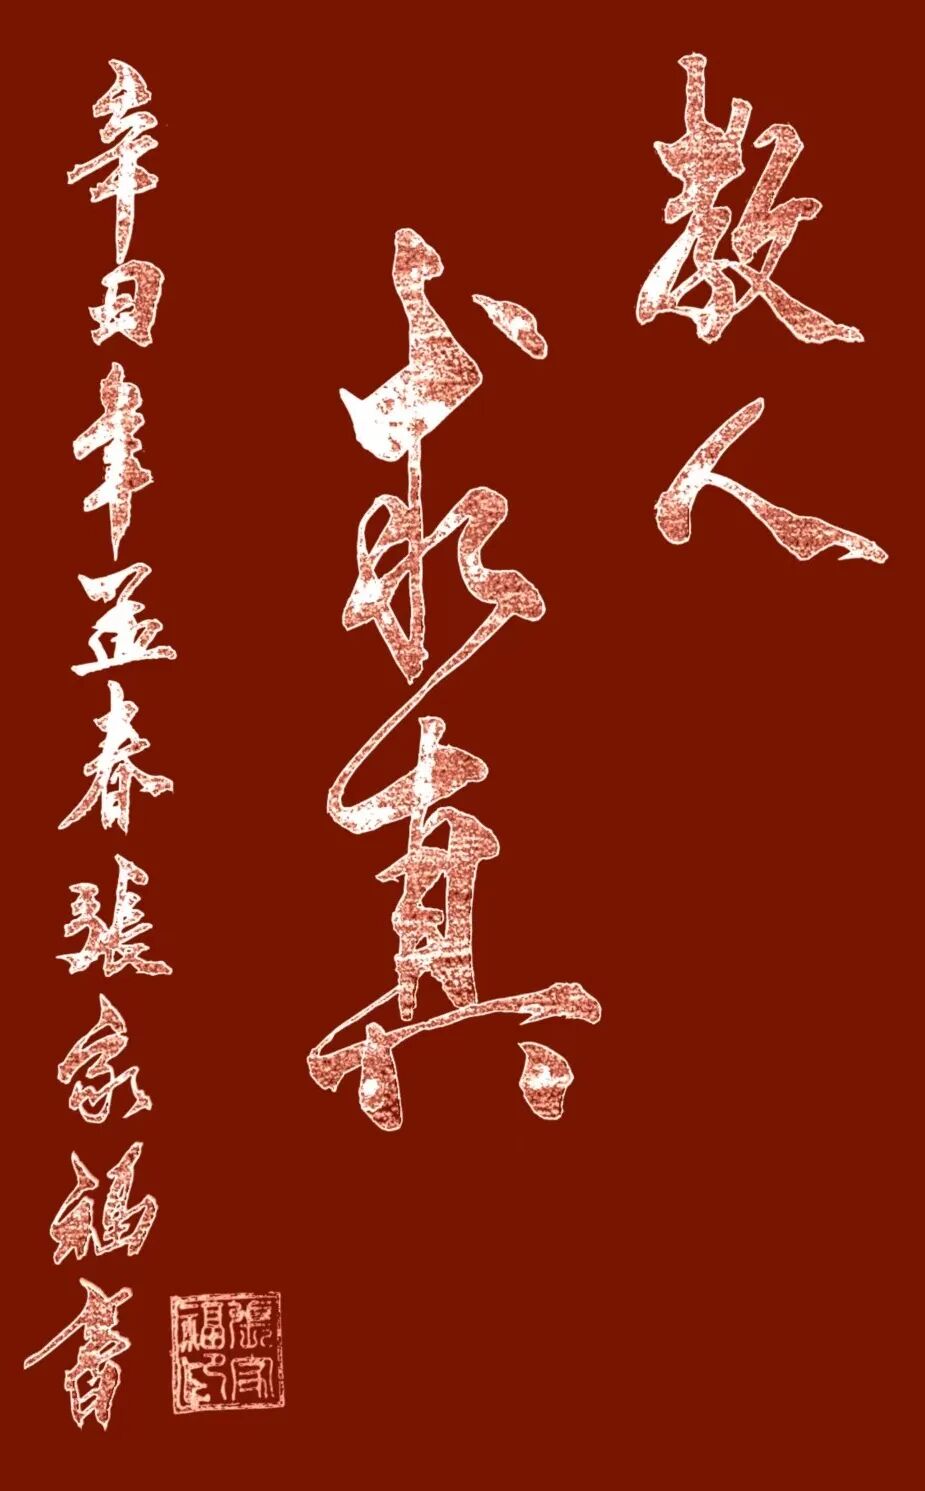 教人
求真
辛丑年孟春張家福書
張家福印